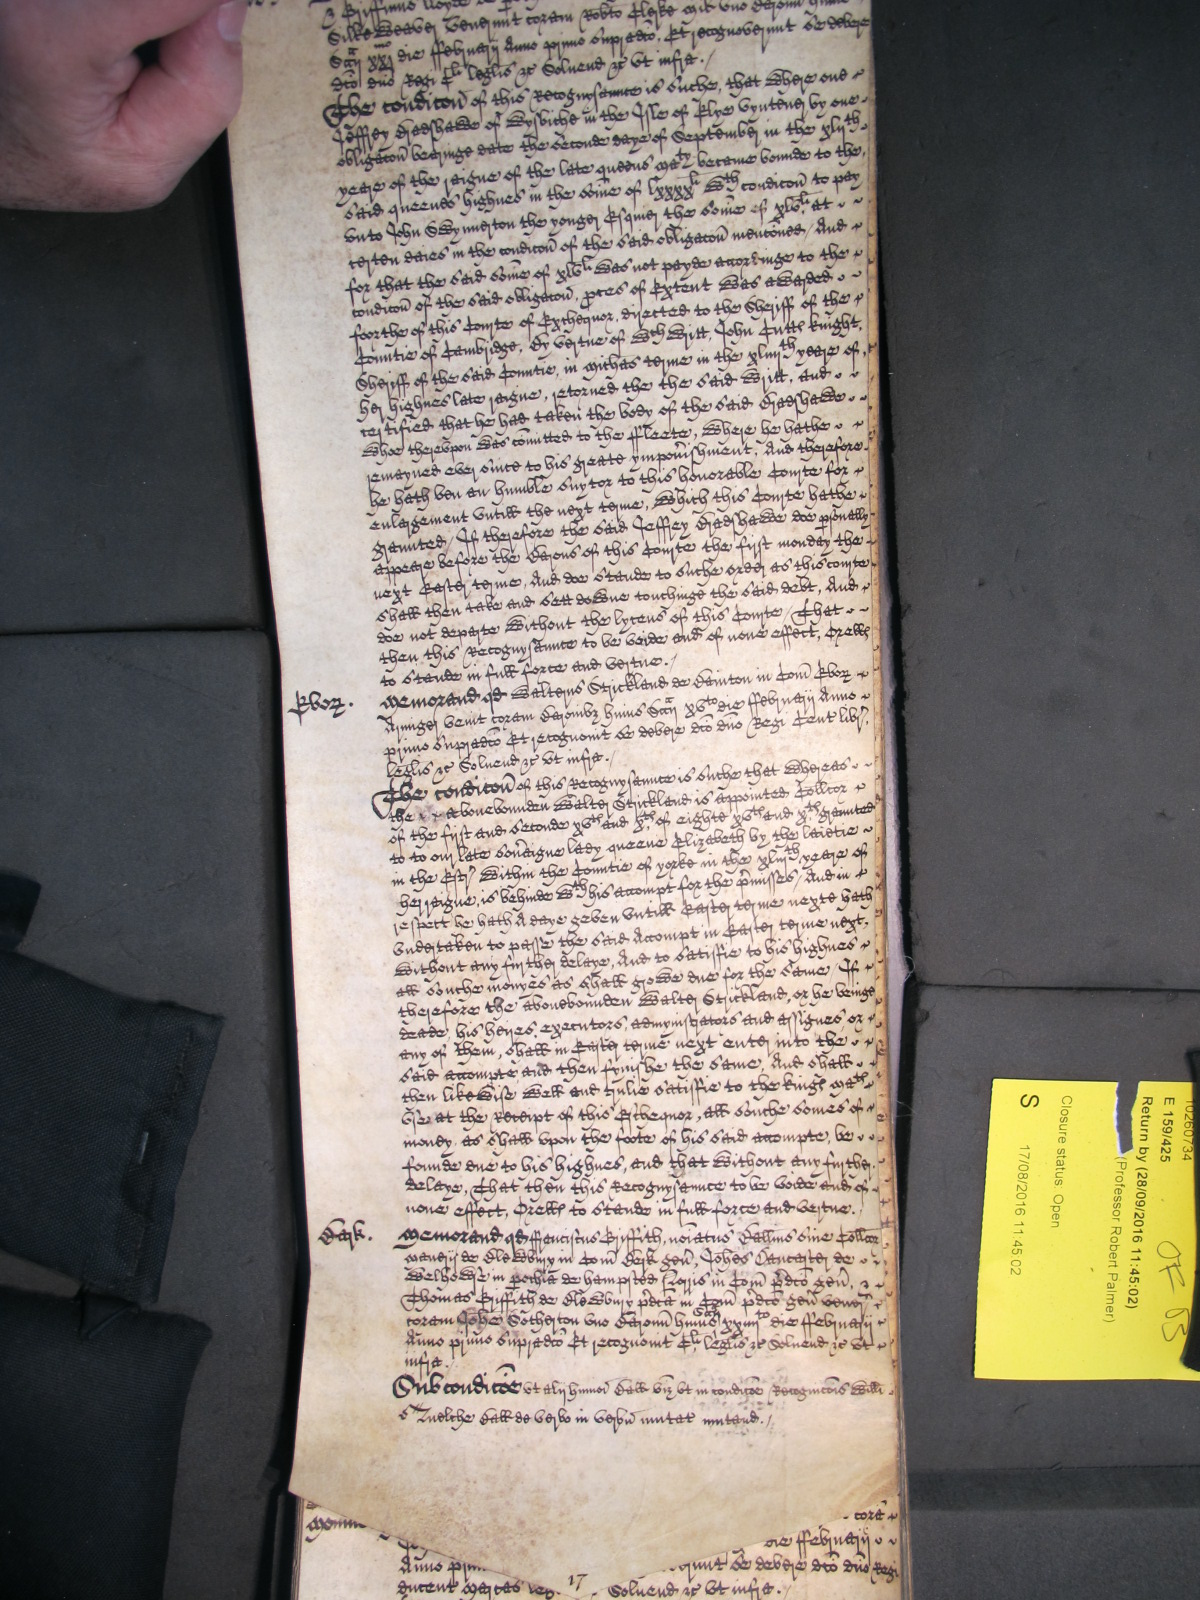 Silkeweaver venerunt coram Robto Clerke mil uno Baronu huius
Scacij xxj mo die ffebruarij Anno primo supradco, Et recognoverunt se debere
dco dno Regi Cli leglis &c Solvend &c ut infra./
The condicon of this Recognysaunce is suche, that where one
Jeffrey Bradshawe of Wysbiche in the Isle of Elye vyntener by one
obligacon beringe date the seconde daye of September in the xlijth
yeare of the raigne of the late queens maty became bounde to the
said queenes highnes in the some of lxxxxli wth condicon to pay
unto John Swynnerton the yonger Esquier the some of xlvli at
certen daies in the condicon of the said obligacon menconed, And
for that the said some of xlvli was not payde accordinge to the
condicon of the said obligacon, proces of Extent was awarded
foorthe of this Courte of Exchequor, directed to the Sheriff of the
Countie of Cambridge, By vertue of wch writt, John Cutts knight,
Sheriff of the said Countie, in michas terme in the xliiijth yeare of
her highnes late raigne, retorned the the said writt, and
certified that he had taken the body of the said Bradshawe
whoe thereupon was comitted to the ffleete, where he hathe
remayned ever since to his greate ympovrishment, And therefore
he hath ben an humble suytor to this honorable Courte for
enlargement untill the next terme, which this Courte hathe
graunted, If therefore the said Jeffrey Bradshawe doe psonally
appeare before the Barons of this Courte the first monday the
next Easter terme, And doe stande to suche order as this courte
shall then take and sett downe touchinge the said debt, And
doe not departe without the lycens of this Courte, That
then this Recognysaunce to be voide and of none effect, Orells
to stande in full force and vertue./
Ebor.
Memorand qd Walterus Strickland de Bainton in Com Ebor
Armiger venit coram Baronibz huius Scacij xvto die ffebruarij Anno
primo supradco Et recognovit se debere dco dno Regi Cent libr.
leglis &c Solvend &c ut infra./
The condicon of this Recognysaunce is suche that whereas
the abovebounden Walter Strickland is appointed Collcor
of the first and seconde xvth and xth of eighte xvth and xth graunted
to to our late sovraigne lady queene Elizabeth by the laietie
in the Est within the Countie of yorke in the xliiijth yeare of
her raigne, is behinde wth his accompt for the pmisses, And in
respect he hath A daye geven untill Easter terme nexte hath
undertaken to passe the said Accompt in Easter terme next,
without any further delaye, And to satisfie to his highnes
all suche monyes as shall growe due for the same, If
therefore the abovebounden Walter Strickland, or he beinge
deade, his heires, executors, admynistrators and assignes or
any of them, shall in Easter terme next enter into the
said accompte and then fynishe the same, And shall
then likewise well and trulie satisfie to the kings mats
use at the Receipt of this Exchequor, all souche somes of
money, as shall upon the foote of his said accompte, be
founde due to his highnes, and that without any further
delaye, That then this Recognysaunce to be voide and of
none effect, Orells to stande in full force and vertue./
Berk.
Memorand qd ffranciscus Griffith, Collcor
manerij de Oldwbury in Com Berk gen, Johes Lancaster de
Welhowse in pochia de hampsted Norris in Com pdco gen,
Thomas Griffith de Oldwbury pdca in Com pdco gen vener
coram Johe Sotherton uno Baronu huius Scacij xxiiijto die ffebruarij
Anno primo supradco Et recognovit Cli leglis &c Solvend &c ut
infra./
Sub condicoe ut alij humoi Ball viz ut in condicoe Recognicois Willi
Zuelche Ball de verbo in verbu mutat mutand./
cora
die ffebruarij
Anno prim debere dco dno Regi
ducent marcas leg Solvend &c ut infra./
17
10260734
E 159/425
Return by (28/09/2016 11:45:02)
(Professor Robert Palmer)
Closure status: Open
S
17/08/2016 11:45:02